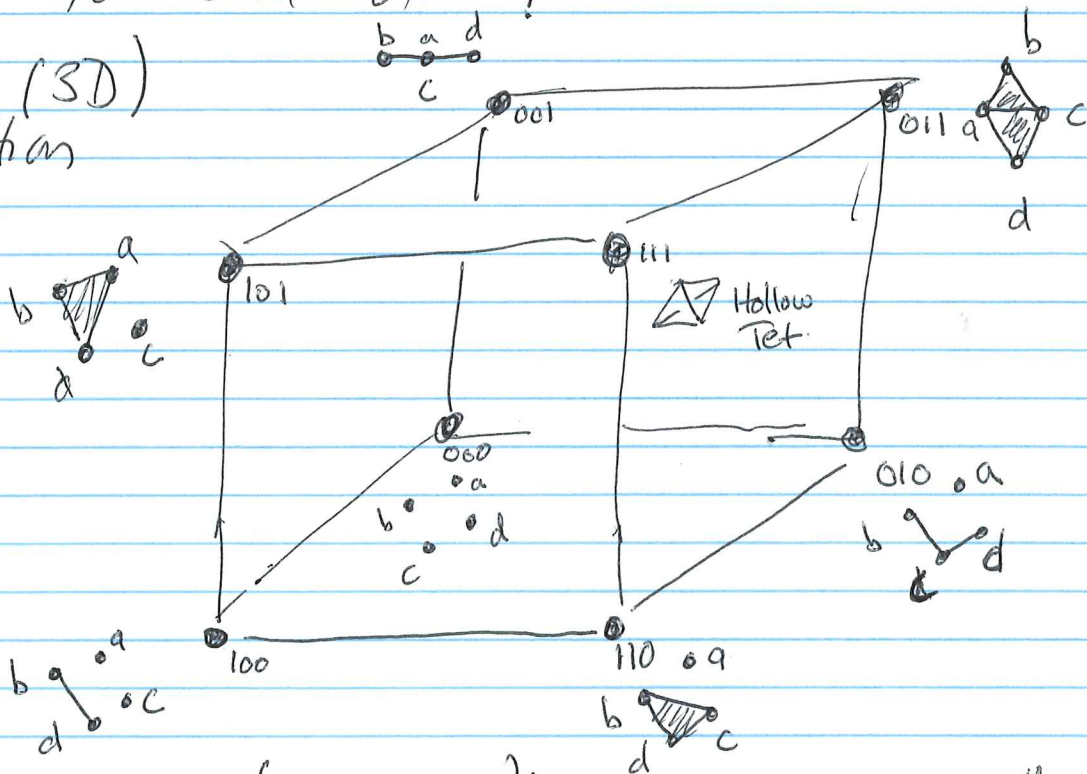 b a d
c
(3D)
001
011
b
a c
d
a
b
c
d
101
111
Hollow
Tet.
000
a
b d
c
010
a
b d
c
100
a
b
c
d
110
a
b
c
d